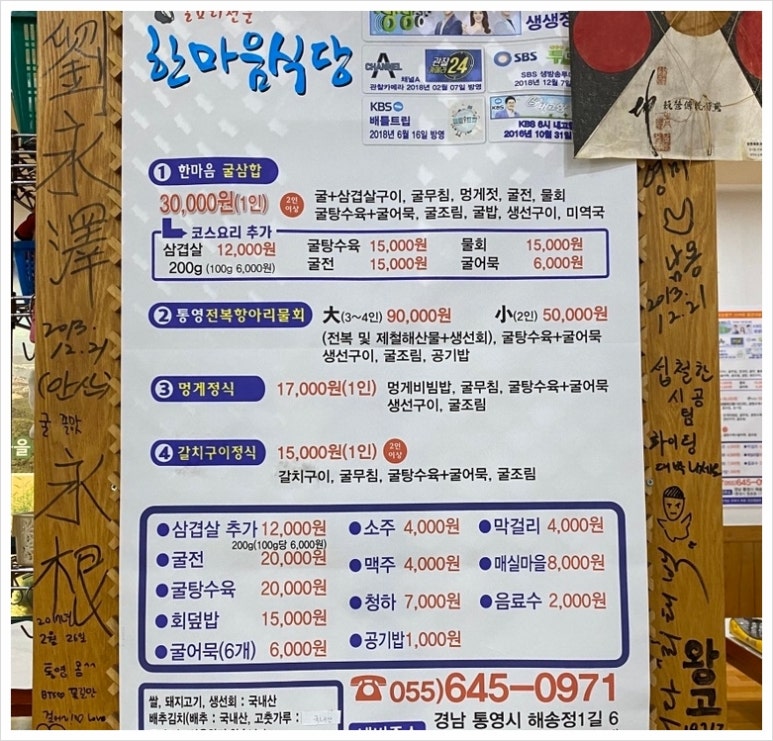 굴요리전문
한마음식당
생생정
CHANNEL A
채널A
관찰
24
관찰카메라 2018년 02월 07일 방영
SBS
SBS 생방송투
2018년 12월 7일
KBS
배틀트립
2018년 6월 16일 방영
KBS 6시 내고
2016년 10월 31일
① 한마음 굴삼합
30,000원(1인) 2인 이상 굴+삼겹살구이, 굴무침, 멍게젓, 굴전, 물회
굴탕수육+굴어묵, 굴조림, 굴밥, 생선구이, 미역국
코스요리 추가
삼겹살 12,000원 굴탕수육 15,000원 물회 15,000원
200g (100g 6,000원) 굴전 15,000원 굴어묵 6,000원
② 통영전복항아리물회 大(3~4인) 90,000원 小(2인) 50,000원
(전복 및 제철해산물+생선회), 굴탕수육+굴어묵
생선구이, 굴조림, 공기밥
③ 멍게정식 17,000원(1인) 멍게비빔밥, 굴무침, 굴탕수육+굴어묵
생선구이, 굴조림
④ 갈치구이정식 15,000원(1인) 2인 이상
갈치구이, 굴무침, 굴탕수육+굴어묵, 굴조림
●삼겹살 추가 12,000원 ●소주 4,000원 ●막걸리 4,000원
200g(100g당 6,000원)
●굴전 20,000원 ●맥주 4,000원 ●매실마을 8,000원
●굴탕수육 20,000원 ●청하 7,000원 ●음료수 2,000원
●회덮밥 15,000원 ●공기밥 1,000원
●굴어묵(6개) 6,000원
쌀, 돼지고기, 생선회 : 국내산
배추김치(배추 : 국내산, 고춧가루 : 국내산
☎055)645-0971
경남 통영시 해송정1길 6
劉永澤
2013.
12.21
(안산)
굴 꿀맛
永根
2월 26일
남몽
2013.
12.21
섭철찬
시공
팀
화이팅
645-09